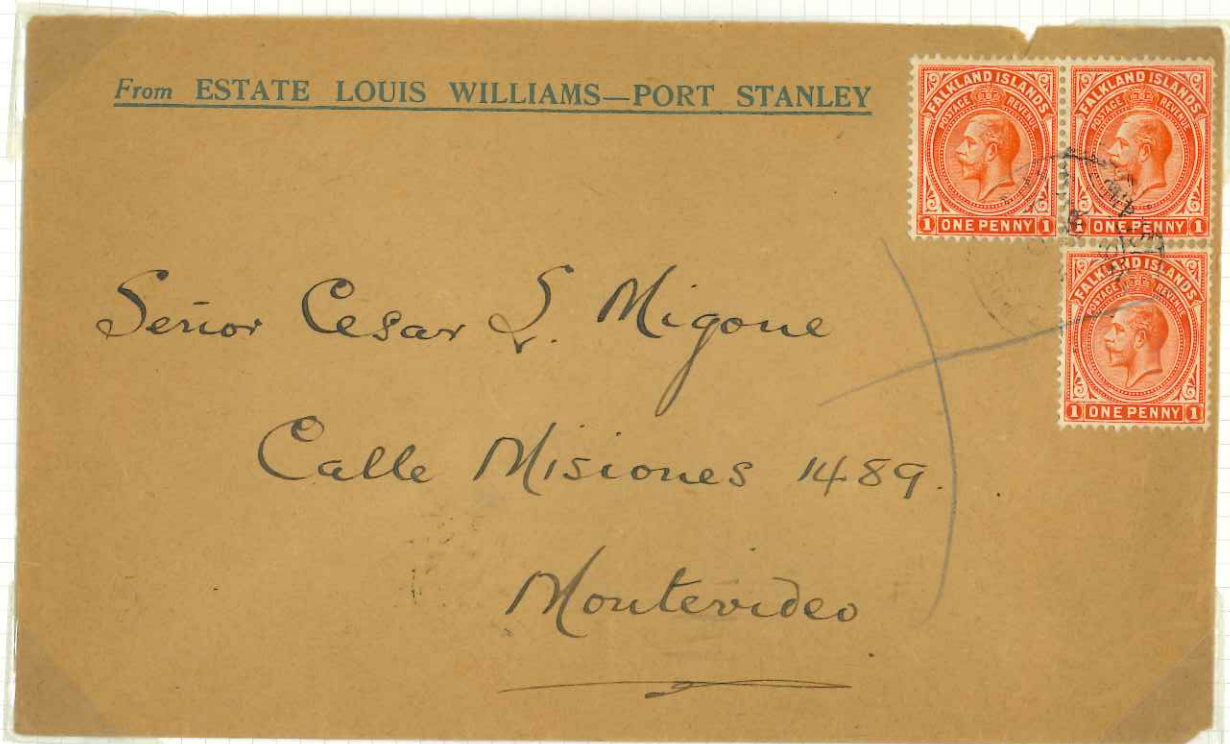 From ESTATE LOUIS WILLIAMS—PORT STANLEY
FALKLAND ISLANDS
POSTAGE REVENUE
1 ONE PENNY 1
FALKLAND ISLANDS
POSTAGE REVENUE
1 ONE PENNY 1
FALKLAND ISLANDS
POSTAGE REVENUE
1 ONE PENNY 1
Señor Cesar L. Migone
Calle Misiones 1489.
Montevideo